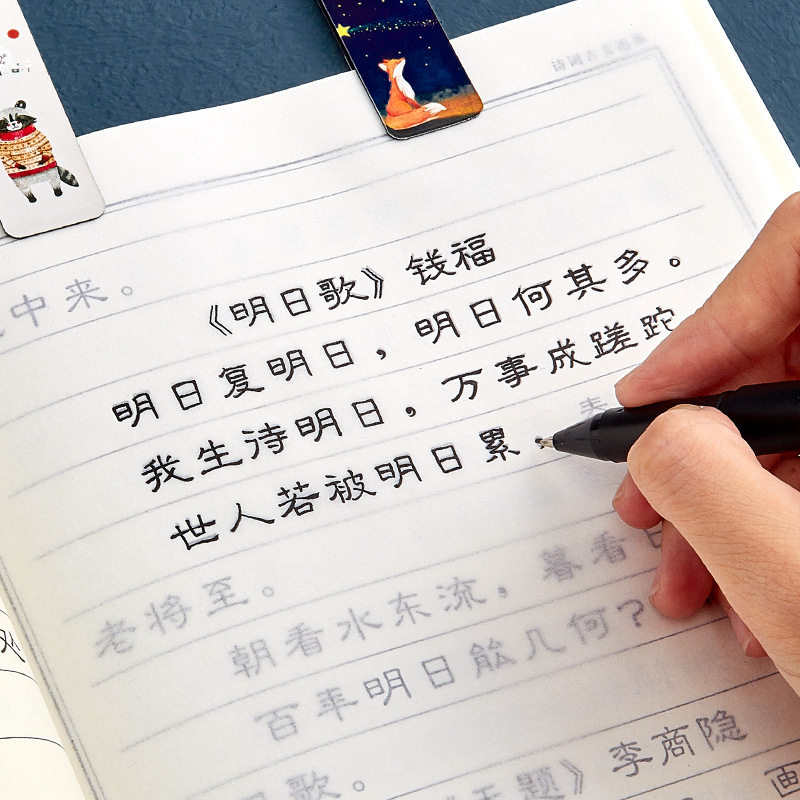 中来。
《明日歌》钱福
明日复明日，明日何其多。
我生诗明日，万事成蹉跎
世人若被明日累
老将至。
朝看水东流，暮看日
百年明日能几何？
歌。
《无题》李商隐
画